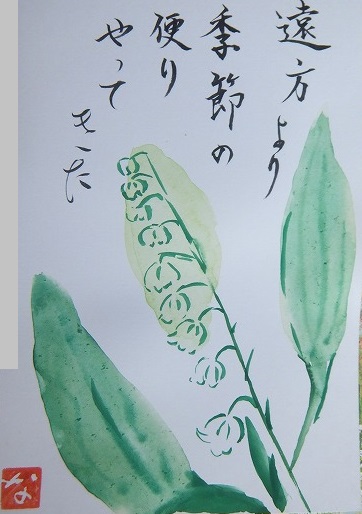 遠方より
季節の
便り
やって
きた
な